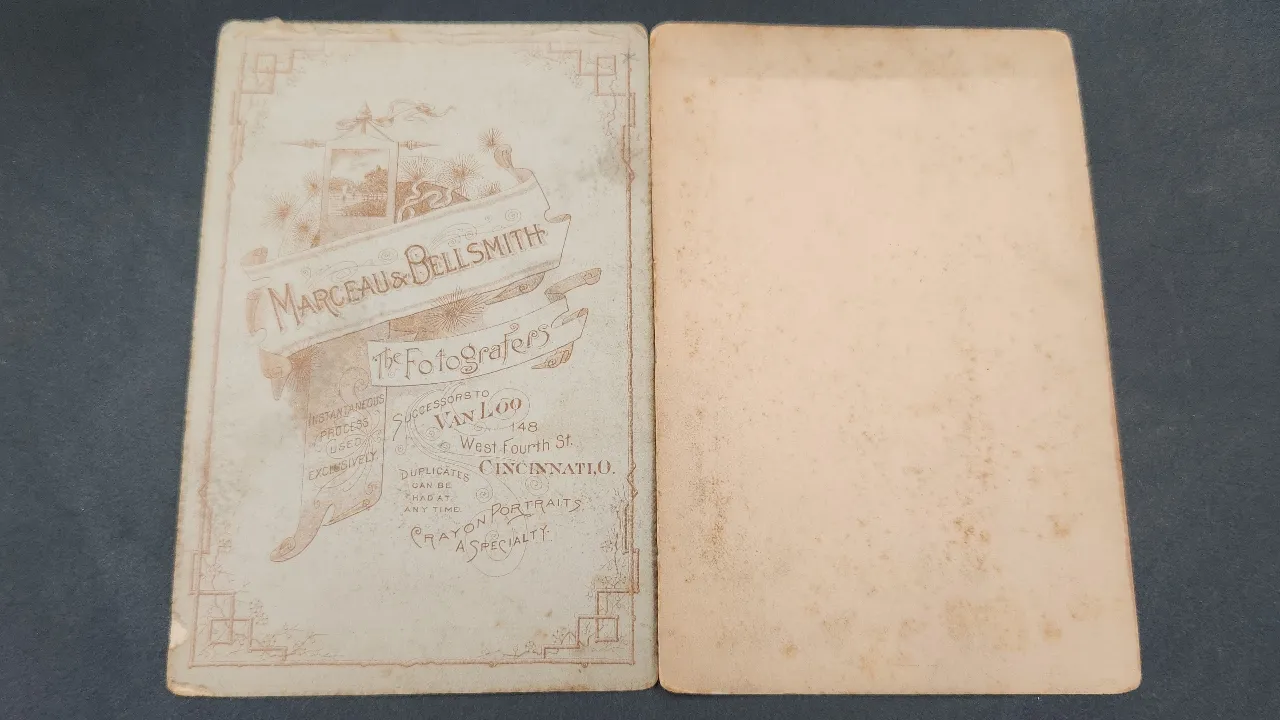 MARCEAU & BELLSMITH
The Fotografers
INSTANTANEOUS
PROCESS
USED
EXCLUSIVELY
SUCCESSORS TO
VAN LOO
148
West Fourth St.
CINCINNATI, O.
DUPLICATES
CAN BE
HAD AT
ANY TIME
CRAYON PORTRAITS
A SPECIALTY.